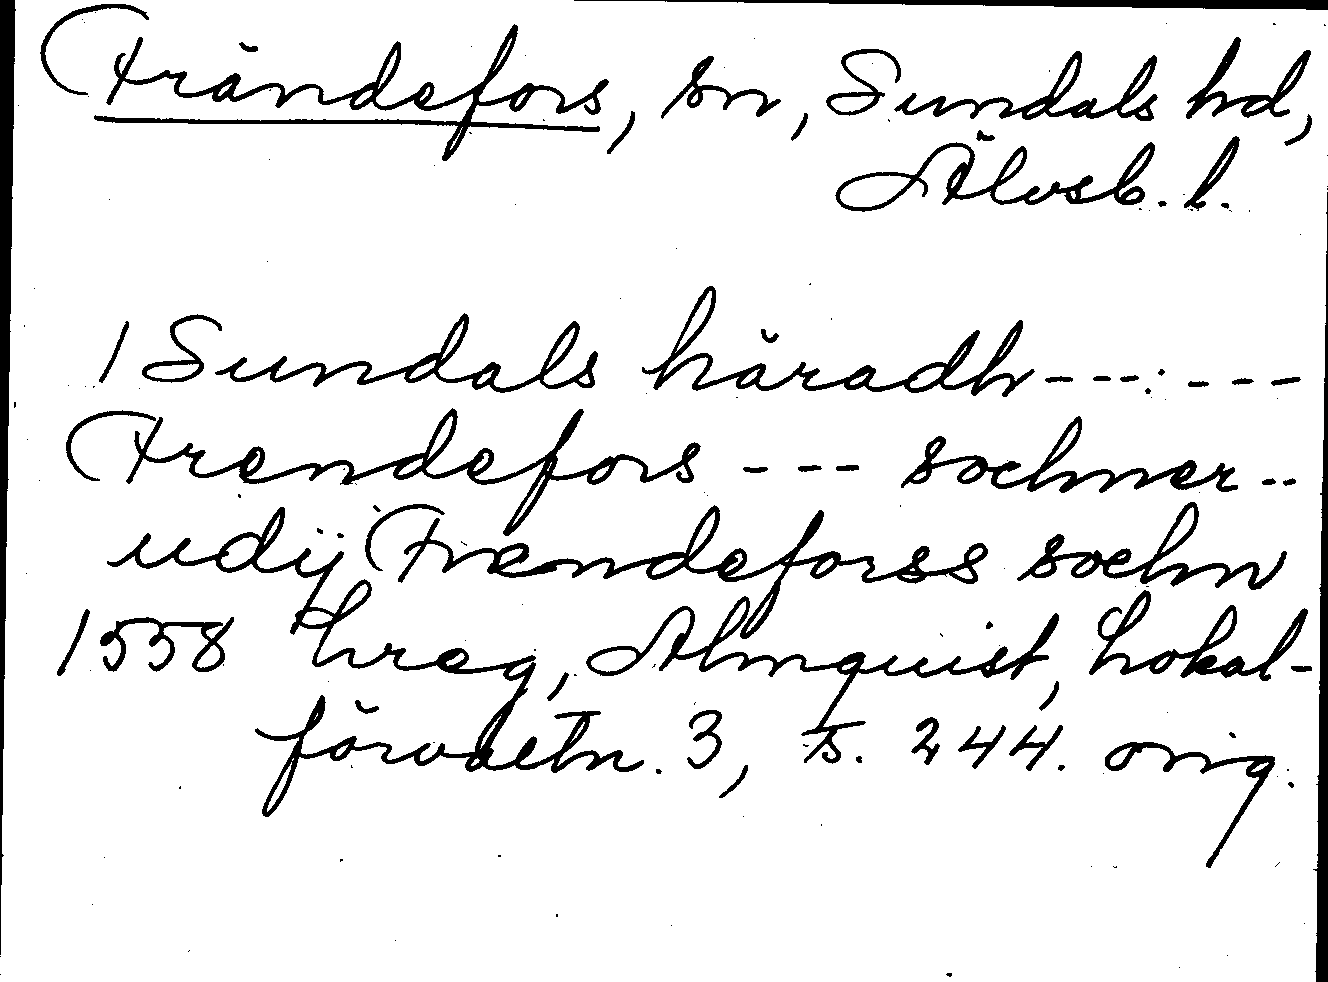 Frändefors, sn, Sundals hd,
Älvsb. l.
I Sundals häradh --- ---
Frendefors --- sochner --
udij Frændeforss sochn
1558 hreg, Almquist, Lokal-
förvaltn. 3, s. 244. orig.